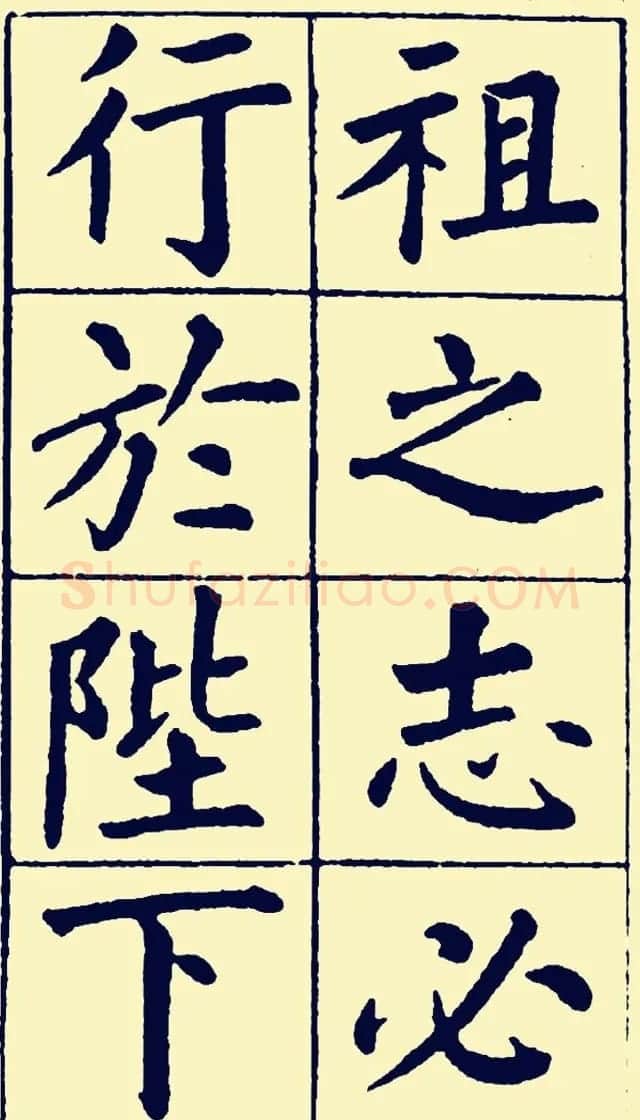 祖之志必
行於陛下
Shufaziliao.COM